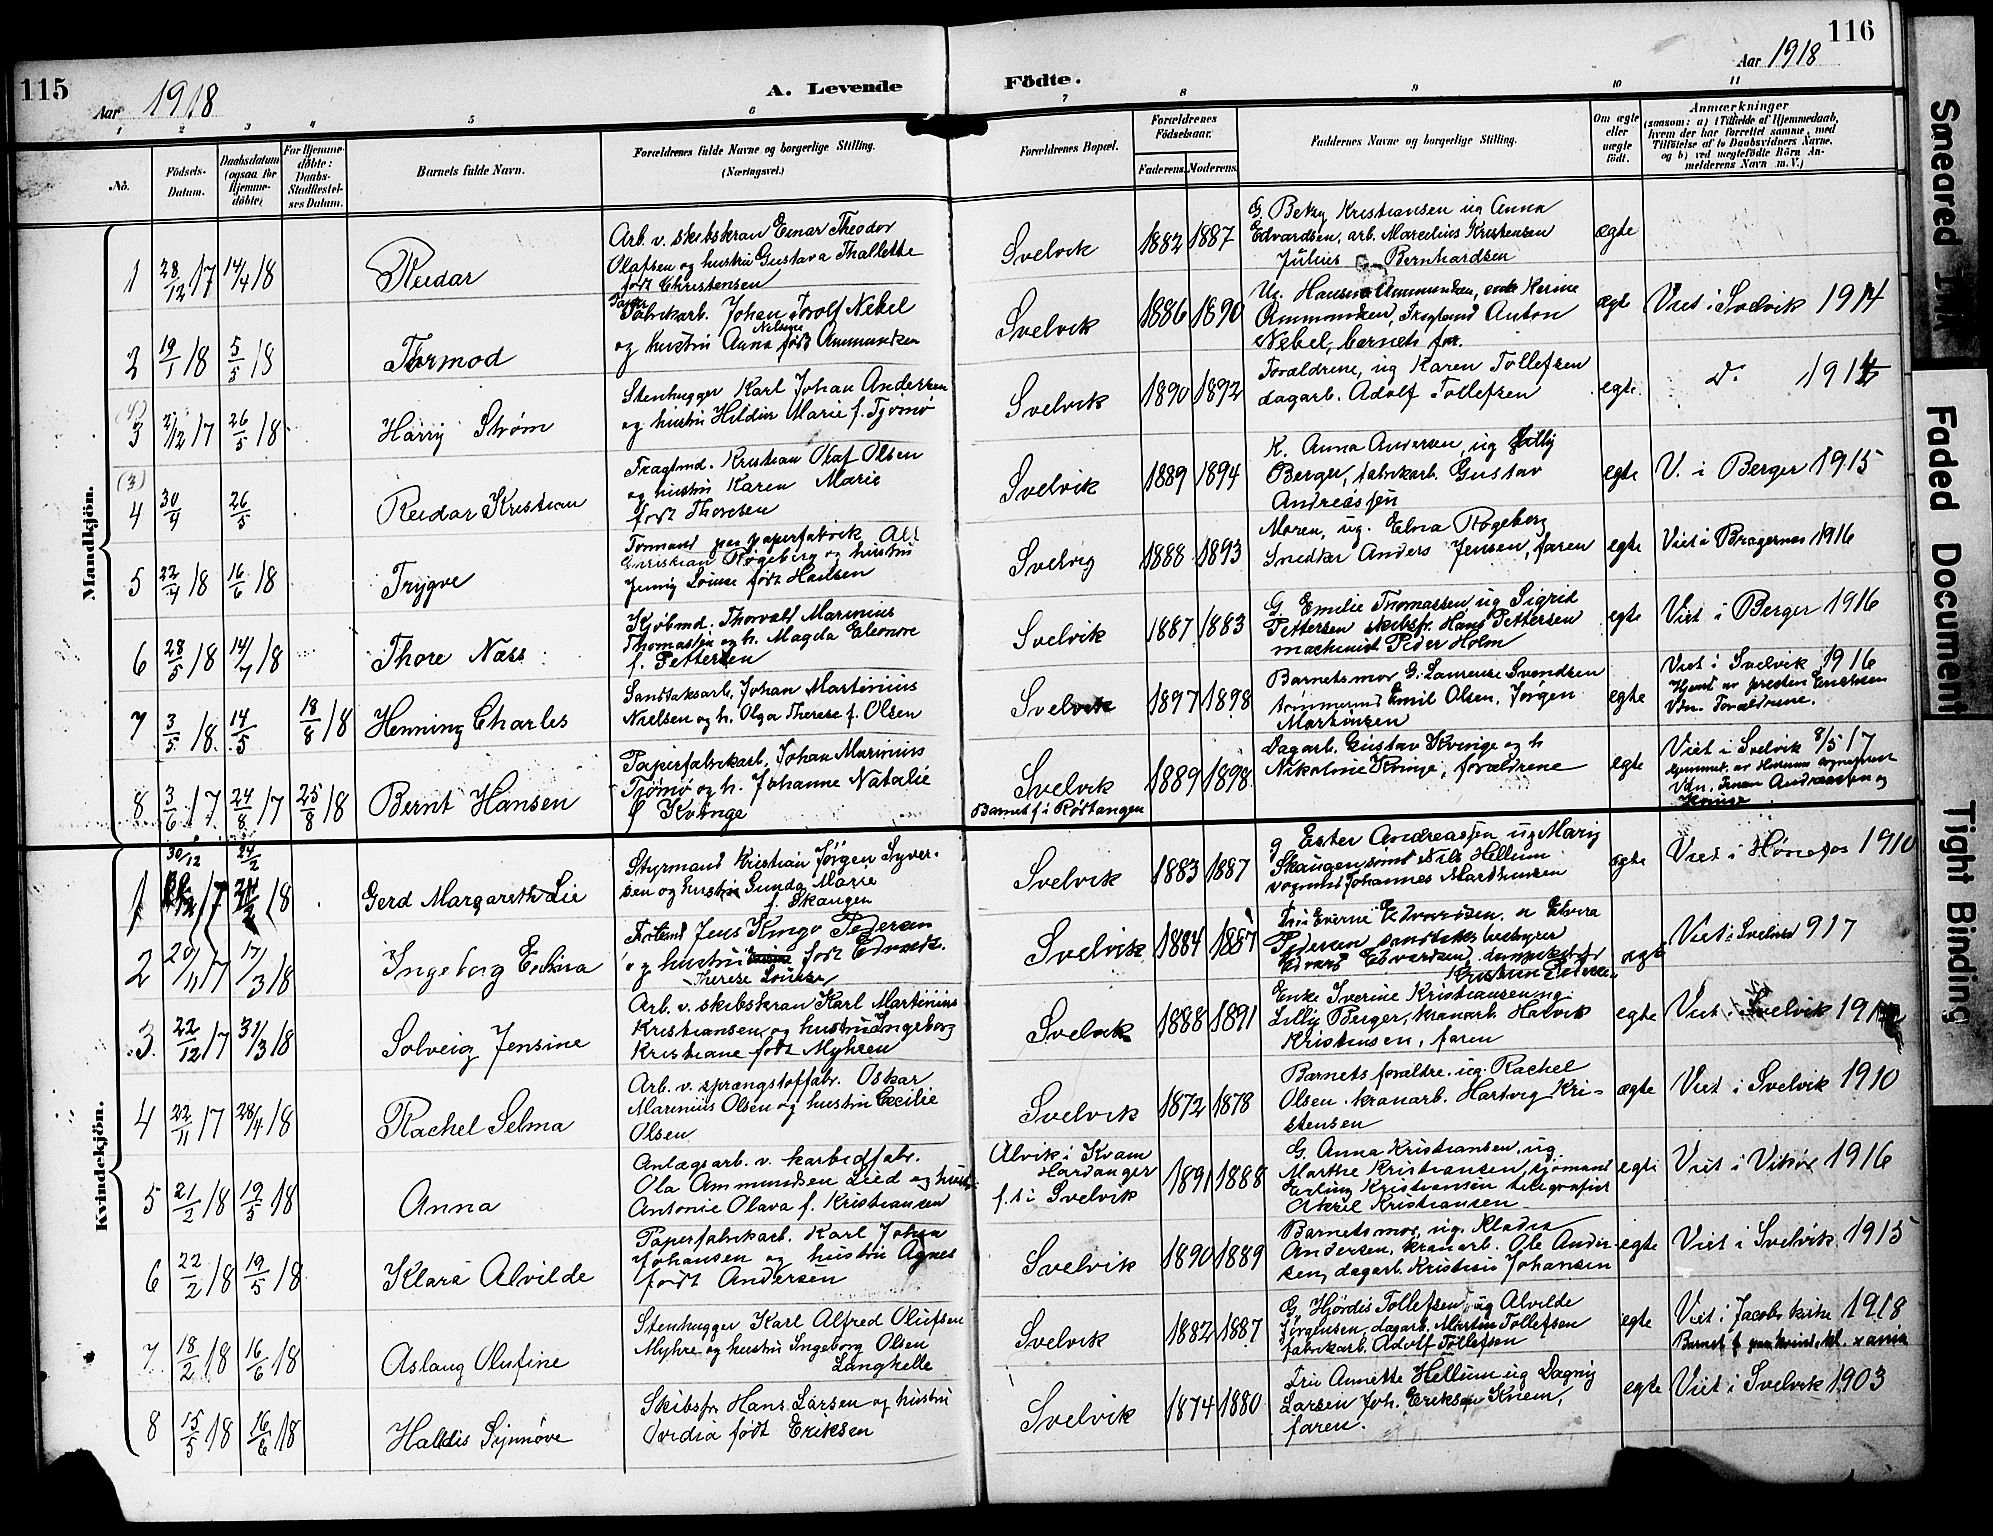 115
Aar 1918
A. Levende
1 2 3 4 5 6
No.
Födsels-
Datum.
Daabsdatum
(ogsaa for
Hjemme-
döbte)
For Hjemme-
döbte:
Daabs-
Stadfæstel-
ses Datum.
Barnets fulde Navn.
Forældrenes fulde Navne og borgerlige Stilling.
(Næringsvei.)
Mandkjön.
1 28/12 17 14/4 18 Reidar
Arb. v. skibskran Einar Theodor
Olafsen og hustru Gustava Thallette
født Christensen
2 19/1 18 5/5 18 Tormod
Papir
Fabrikarb. Johan Torolf Nebel
Nelsine
og hustru Anna født Ammundsen
3 2/12 17 26/5 18 Harry Strøm
Stenhugger Karl Johan Andersen
og hustru Hildur Marie f. Tjømø
(3)
4 30/4 26/5 Reidar Kristian
Fragtmd. Kristian Olaf Olsen
og hustru Karen Marie
født Thoresen
5 22/4 18 16/6 18 Trygve
Formand paa papirfabrik Alf
Christian Røgeberg og hustru
Jenny Louise født Hansen
6 28/5 18 14/7 18 Thore Næss
Kjøbmd. Thorvald Marinius
Thomassen og h. Magda Eleonore
f. Pettersen
7 3/5 18 14/5 18/8 18 Henning Charles
Sandtaksarb. Johan Martinius
Nielsen og h. Olga Therese f. Olsen
8 3/6 17 24/8 17 25/8 18 Bernt Hansen
Papirfabrikarb. Johan Marinius
Tjømø og h. Johanne Natalie
f Kvinge
Kvindekjön.
30/12 24/2
1 17 18 Gerd Margarethe Lie
Styrmand Kristian Jörgen Syver-
sen og hustru Gunda Marie
f. Skaugen
2 20/11 17 17/3 18 Ingeborg
Jens Kingo Pedersen
og hustru født
Therese Louise
3 22/12 17 31/3 18 Solveig Jensine
Arb. v. skibskran Karl Martinius
Kristiansen og hustru Ingeborg
Kristiane født Myhren
4 22/11 17 28/4 18 Rachel Selma
Arb. v. sprængstoffabr. Oskar
Marinius Olsen og hustru Cecilie
Olsen
5 21/2 18 19/5 18 Anna
Anlægsarb. v. karbidfabr.
Ola Ammundsen Lied og hustru
Antonie Olava f. Kristiansen
6 22/2 18 19/5 18 Klara Alvilde
Papirfabrikarb. Karl Johan
Johansen og hustru Agnes
født Andersen
7 18/2 18 16/6 18 Aslaug Olufine
Stenhugger Karl Alfred Olufsen
Myhre og hustru Ingeborg Olsen
Langhelle
8 15/5 18 16/6 18 Haldis Synnøve
Skibsfr. Hans Larsen og hustru
Ovidia født Eriksen
116
Aar 1918
Födte.
7 8 9 10 11
Forældrenes Bopæl.
Forældrenes
Födselsaar.
Faderens. Moderens.
Faddernes Navne og borgerlige Stilling.
Om ægte
eller
uægte
födt.
Anmærkninger
(saasom: a) i Tilfælde af Hjemmedaab,
hvem der har forrettet samme, med
Tilföielse af to Daabsvidners Navne,
og b) ved uægtefödte Börn An-
melderens Navn m. V.)
Svelvik 1882 1887
G. Betzy Kristiansen ug Anna
Edvardsen, arb. Marcelius Kristensen
Julius Bernhardsen
ægte
Svelvik 1886 1890
Ammundsen, enke Karine
Ammundsen, Anton
Nebel, barnets far.
ægte Viet i Svelvik 1914
Svelvik 1890 1892
Forældrene, ug Karen Tollefsen
dagarb. Adolf Tollefsen
egte.
Svelvik 1889 1894
K. Anna Andersen, ug Lilly
Berger, fabrikarb. Gustav
Andreassen
egte V. i Berger 1915
Svelvig 1888 1893
Moren, ug. Elna Røgeberg
Snedker Anders Jensen, faren
egte Viet i Bragernes 1916
Svelvik 1887 1883
G. Emilie Thomassen ug Sigrid
Pettersen skibsfr. Hans Pettersen
machinist Peder Holm
egte Viet i Berger 1916
Svelvik 1897 1898
Barnets mor G. Laurense Svendsen
tømmermd Emil Olsen, Jørgen
Martinsen
egte
Viet i Svelvik 1916
Hjemd. av presten Erichsen
Vdn. Forældrene.
Svelvik 1889 1898
Barnet f. i Rødtangen
Dagarb. Gustav Kvinge og h
Nikoline Kvinge, forældrene
egte
Viet i Svelvik 8/5 17
Hjemmed. av Hurum sogneprest
Vdn. Andreassen og
Kvinge
Svelvik 1883 1887
g Ester Andreassen, ug Mary
Skaugen smd Nils Hellum
vognmd Johannes Mathiesen
ægte Viet i Hønefos 1910
Svelvik 1884 1887
Edvardsen, Elvira
Pedersen sandtaksbestyrer
Edvard Edvardsen,
Kristian Pedersen
ægte Viet i Svelvik 917
Svelvik 1888 1891
Enke Iverine Kristiansen ug.
Lilly Berger, kranarb Halvik
Kristensen, faren
egte Viet i Svelvik
Svelvik 1872 1878
Barnets forældre. ug. Rachel
Olsen. kranarb. Hartvig Kri-
stensen
ægte Viet i Svelvik 1910
Alvik i Kvam
Hardanger
f. t. i Svelvik 1891 1888
G. Anna Kristiansen, ug.
Marthe Kristiansen, sjømand
Erling Kristiansen telegrafist
Aksel Kristiansen
egte Viet i Vikør 1916
Svelvik 1890 1889
Barnets mor, ug. Kladia
Andersen, kranarb. Ole Ander-
sen, dagarb. Kristian Johansen
egte Viet i Svelvik 1915
Svelvik 1882 1887
G. Hjördis Tollefsen ug Alvilde
Jørgensen, dagarb. Martin Tollefsen
fabrikarb. Adolf Tollefsen
egte Viet i Jacobs kirke 1918
Svelvik 1874 1880
Fru Annette Hellum ug Dagny
Larsen Joh. Eriksen Knem,
faren.
egte Viet i Svelvik 1903
Smeared Ink
Faded Document
Tight Binding